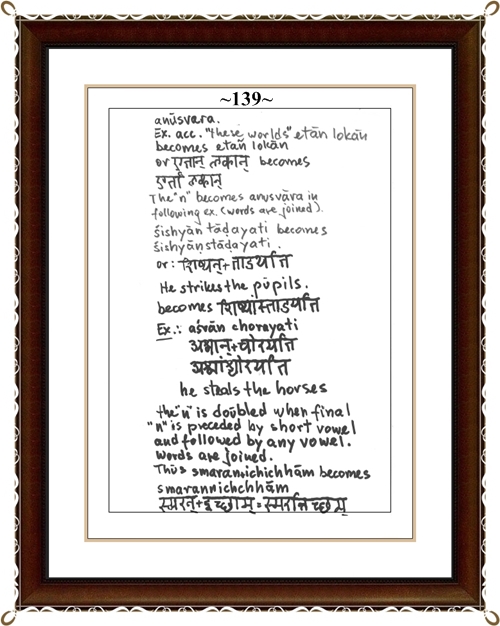 ~139~
anūsvara.
Ex. acc. "there worlds" etān lokān
becomes etan̐ lokān
or एतान् लोकान् becomes
एताँ लोकान्
The "n" becomes anusvāra in
following ex. (words are joined).
śishyān tāḍayati becomes
śishyāṅstāḍayati.
or: शिष्यन्+ताडयति
He strikes the pūpils.
becomes शिष्यास्ताडयति
Ex.: aśvān chorayati
अश्वान्+चोरयति
अश्वांश्चोरयति
he steals the horses
the "n" is doūbled when final
"n" is preceded by short vowel
and followed by any vowel.
words are joined.
Thūs smarannichichhām becomes
smarannichchhām
स्मरन्+इच्छाम्=स्मरन्निच्छाम्